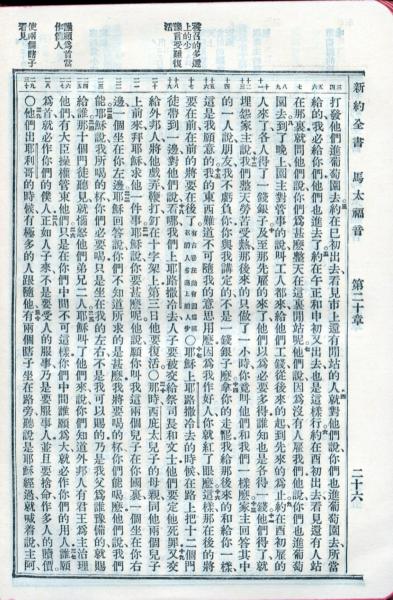 新約全書 馬太福音 第二十章 二十六
打發他們進葡萄園去約在巳初出去看見市上還有閒站的人就對他們說你們也進葡萄園去所當
給的我必給你們他們也進去了約在午正和申初又出去也是這樣行約在酉初出去看見還有人站
在那裏就問他們說你們爲甚麼整天在這裏閒站呢他們說因爲沒有人雇我們他說你們也進葡萄
園去到了晚上園主對管事的說叫工人都來給他們工錢從後來的起到先來的爲止約在酉初雇的
人來了各人得了一錢銀子及至那先雇的來了他們以爲必要多得誰知也是各得一錢他們得了就
埋怨家主說我們整天勞苦受熱那後來的只做了一小時你竟叫他們和我們一樣麼家主回答其中
的一人說朋友我不虧負你你與我講定的不是一錢銀子麼拿你的走罷我給那後來的和給你一樣
這是我願意的我的東西難道不可隨我的意思用麼因爲我作好人你就紅了眼麼這樣那在後的將
要在前在前的將要在後了○耶穌上耶路撒冷去的時候在路上把十二個門
徒帶到一邊對他們說看哪我們上耶路撒冷去人子要被交給祭司長和文士他們要定他死罪又交
給外邦人將他戲弄鞭打釘在十字架上第三日他要復活○那時西庇太兒子的母親同他兩個兒子
上前來拜耶穌求他一件事耶穌說你要甚麼呢他說願你叫我這兩個兒子在你國裏一個坐在你右
邊一個坐在你左邊耶穌回答說你們不知道所求的是甚麼我將要喝的杯你們能喝麼他們說我們
能耶穌說我所喝的杯你們必要喝只是坐在我的左右不是我可以賜的乃是我父爲誰豫備的就賜
給誰那十個門徒聽見就惱怒他們弟兄二人耶穌叫了他們來說你們知道外邦人有君王爲主治理
他們有大臣操權管束他們只是在你們中間不可這樣你們中間誰願爲大就必作你們的用人誰願
爲首就必作你們的僕人正如人子來不是要受人的服事乃是要服事人並且要捨命作多人的贖價
○他們出耶利哥的時候有極多的人跟隨他有兩個瞎子坐在路旁聽說是耶穌經過就喊着說主阿
誰願爲首當
使兩個瞎子
看見